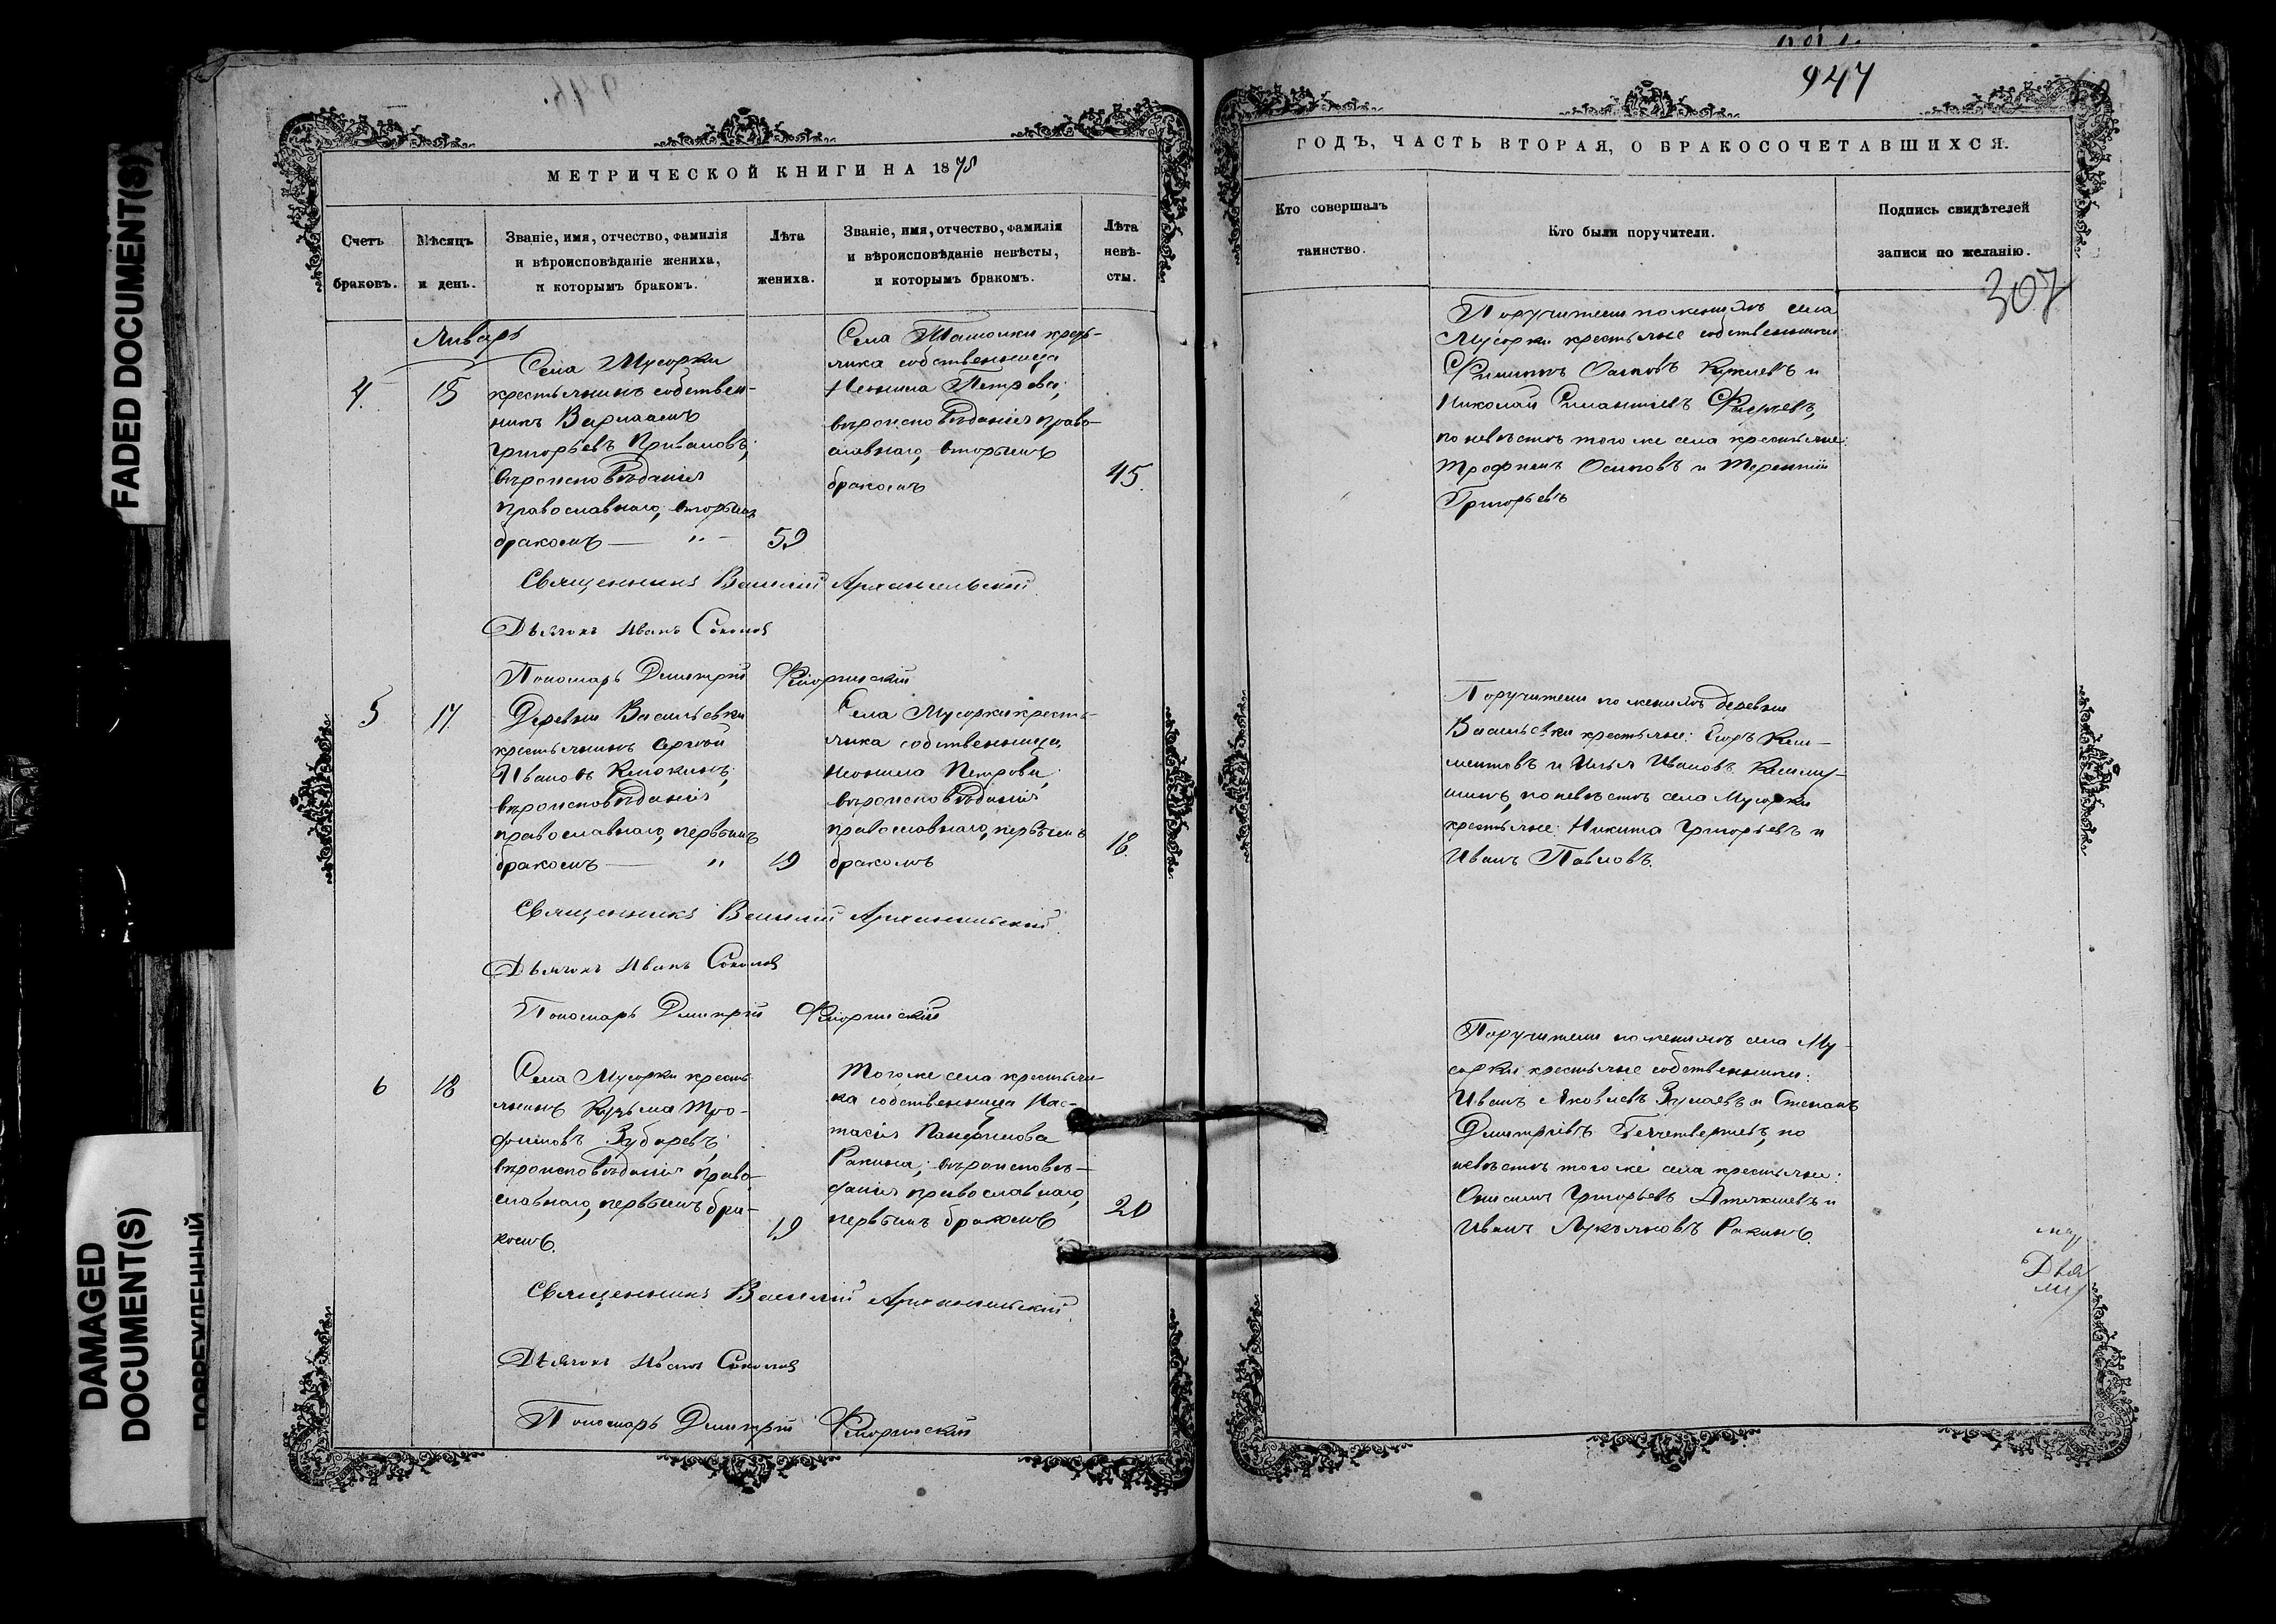 FADED DOCUMENT(S)
DAMAGED
DOCUMENT(S)
ПОВРЕЖДЕННЫЙ
МЕТРИЧЕСКОЙ КНИГИ НА 1878
Счетъ
браковъ.
Мѣсяцъ
и день.
Званіе, имя, отчество, фамилія
и вѣроисповѣданіе жениха,
и которымъ бракомъ.
Лѣта
жениха.
Званіе, имя, отчество, фамилія
и вѣроисповѣданіе невѣсты,
и которымъ бракомъ.
Лѣта
невѣ-
сты.
Январь
4.
15
Села Мусорки
крестьянинъ собствен-
никъ Варлаамъ
Григорьевъ Приваловъ;
вѣроисповѣданія
православнаго, вторымъ
бракомъ — „ —
59
Села Ташолки кресть-
янка собственница
Неонила Петрова;
вѣроисповѣданія право-
славнаго, вторымъ
бракомъ
45.
Священникъ Василій Архангельскій.
Дьячокъ Иванъ Соколов
Пономарь Димитрій Флоринскій
5
17.
Деревни Васильевки
крестьянинъ Сергѣй
Ивановъ Клюкинъ;
вѣроисповѣданія
православнаго, первымъ
бракомъ — „
19
Села Мусорки кресть-
янка собственница
Неонила Петрова;
вѣроисповѣданія
православнаго, первымъ
бракомъ
18.
Священникъ Василій Архангельскій.
Дьячокъ Иванъ Соколов
Пономарь Димитрій Флоринскій
6
18
Села Мусорки кресть-
янинъ Кузьма Тро-
фимовъ Зубаревъ;
вѣроисповѣданія право-
славнаго, первымъ бра-
комъ.
19
Того же села крестьян-
ка собственница Нас-
тасія Панфилова
Ракина; вѣроисповѣ-
данія православнаго,
первымъ бракомъ
20
Священникъ Василій Архангельскій.
Дьячокъ Иванъ Соколов
Пономарь Димитрій Флоринскій
947
ГОДЪ, ЧАСТЬ ВТОРАЯ, О БРАКОСОЧЕТАВШИХСЯ.
Кто совершалъ
таинство.
Кто были поручители.
Подпись свидѣтелей
записи по желанію.
307
Поручители по женихѣ села
Мусорки крестьяне собственники
Филиппъ Осиповъ и
Николай
по невѣстѣ того же села крестьяне:
Трофимъ Осиповъ и Терентій
Григорьевъ
Поручители по женихѣ деревни
Васильевки крестьяне: Егоръ Кли-
ментовъ и Илья Ивановъ
по невѣстѣ села Мусорки
крестьяне: Никита Григорьевъ и
Иванъ Павловъ.
Поручители по женихѣ села Му-
сорки крестьяне собственники:
Иванъ Яковлевъ и Степанъ
Димитріевъ по
невѣстѣ того же села крестьяне:
Онисимъ Григорьевъ и
Иванъ Лукъяновъ Ракинъ.